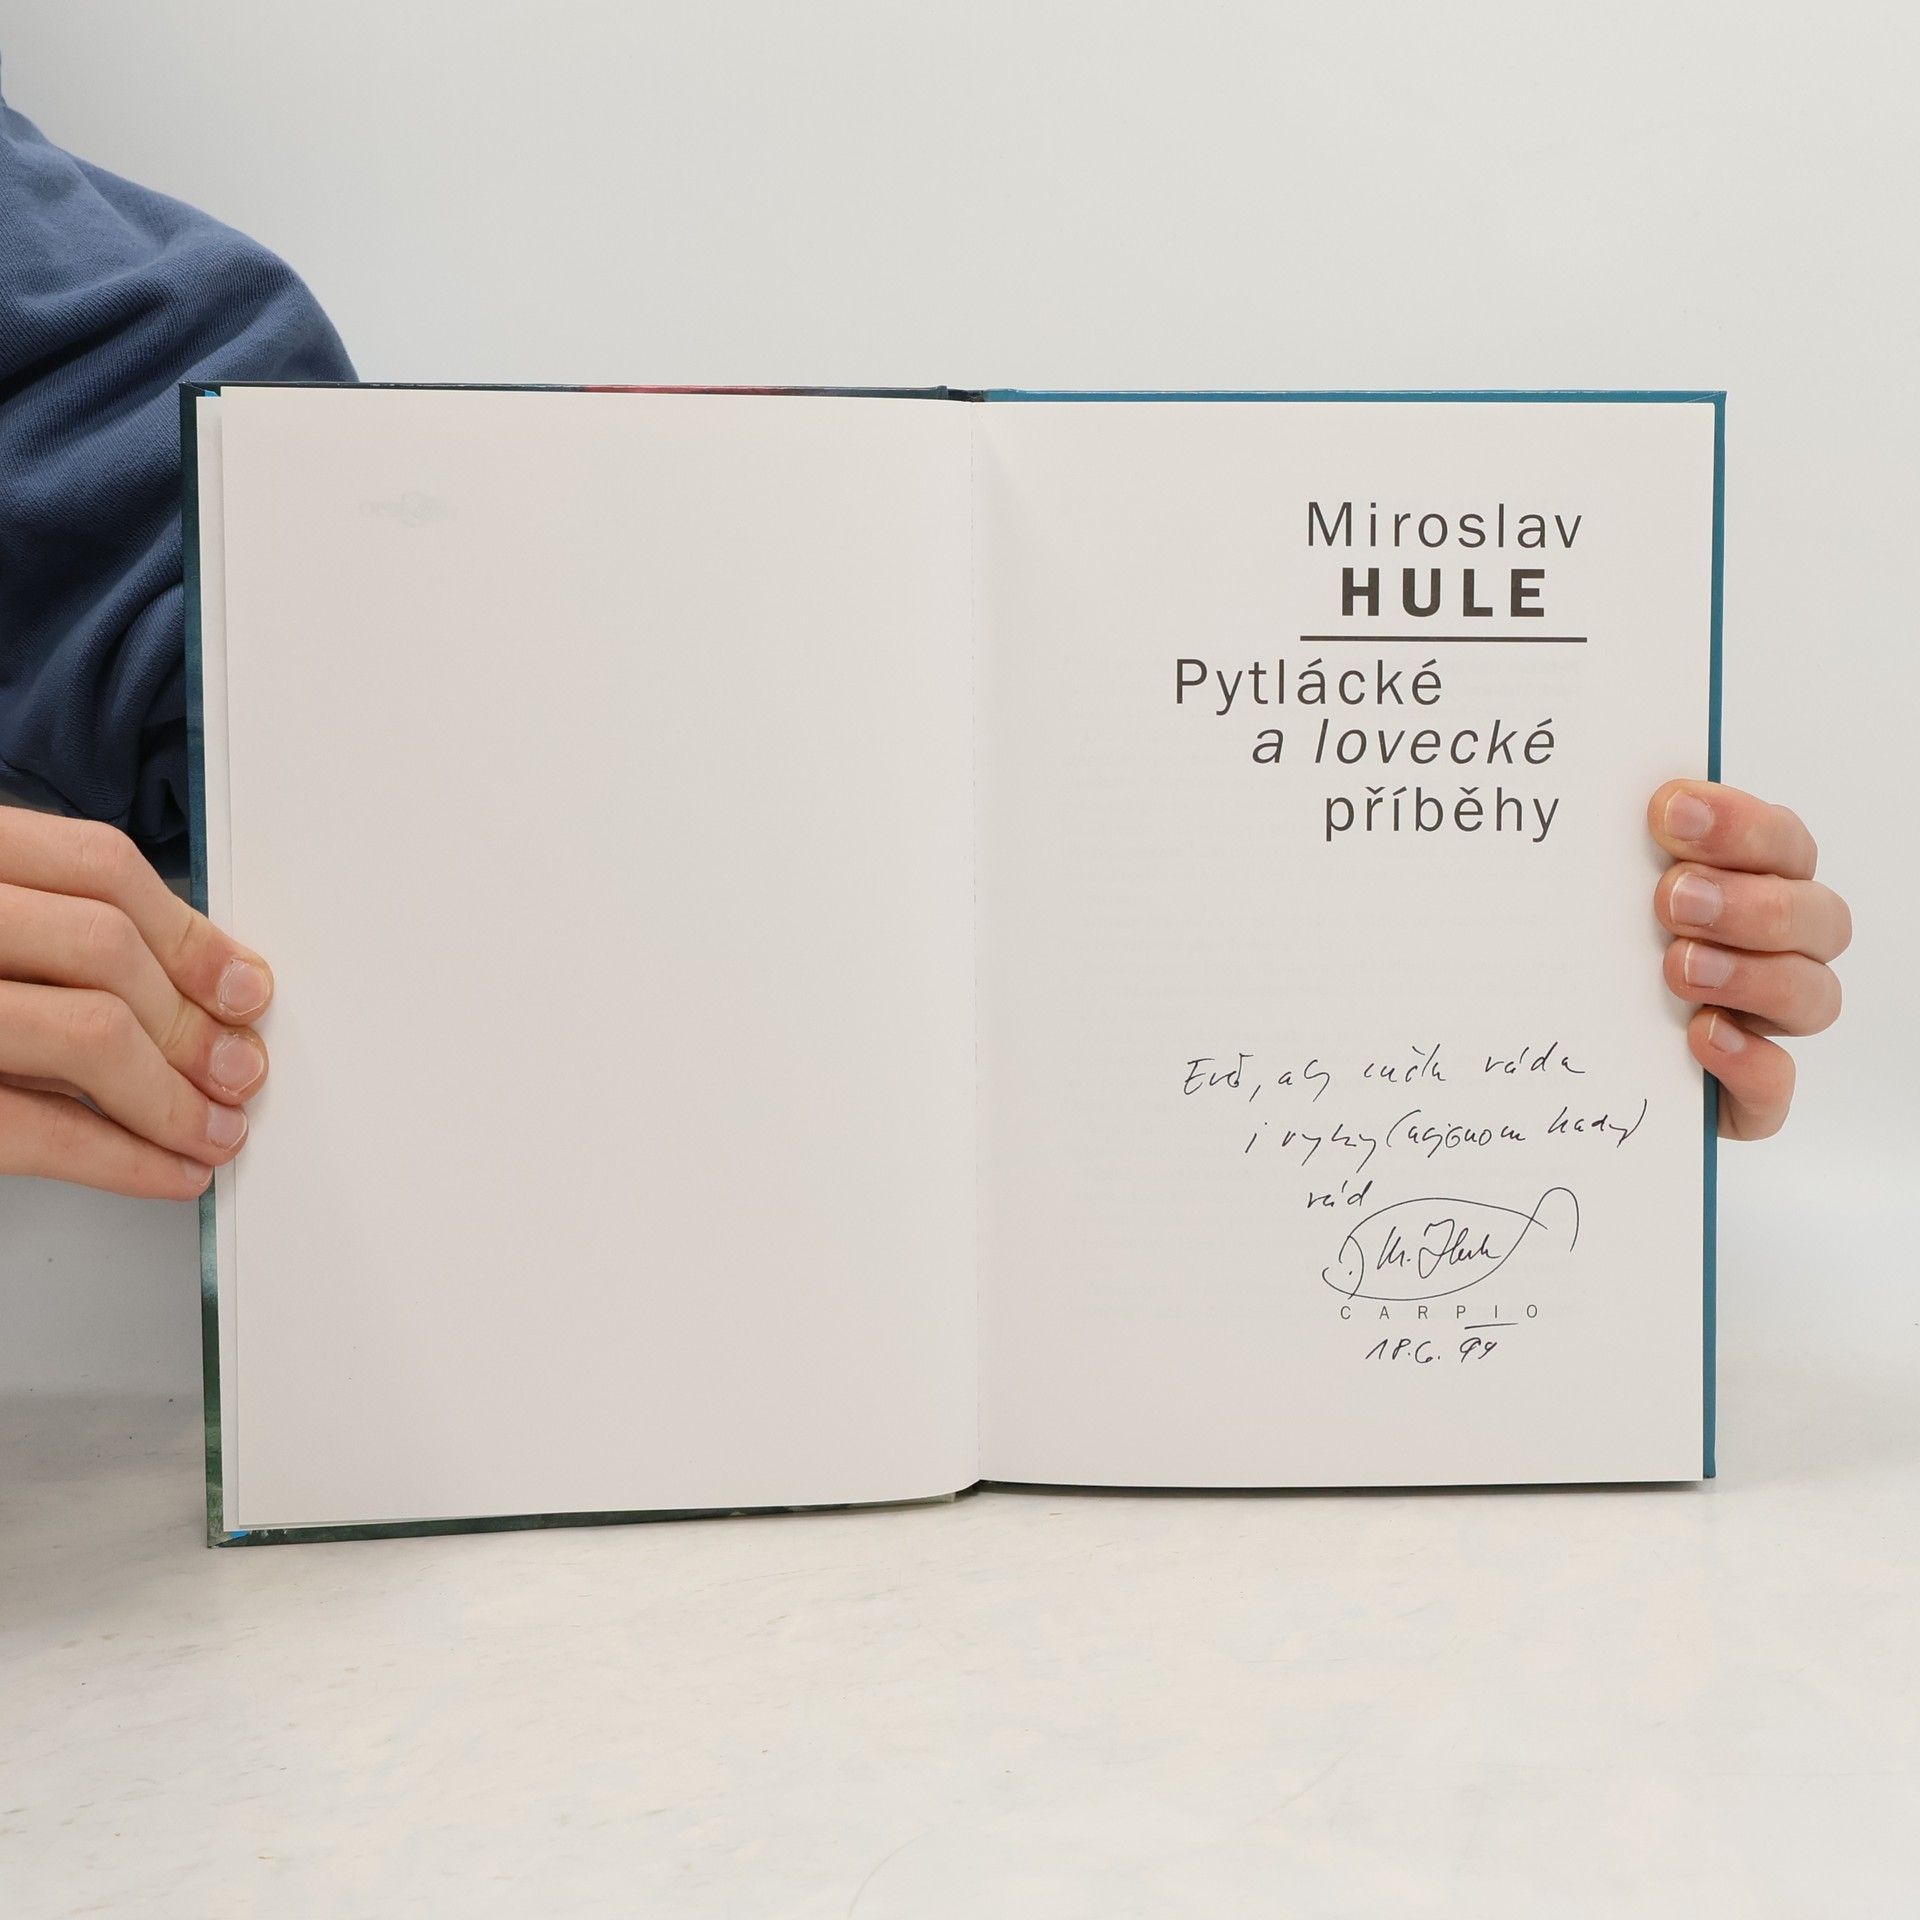 Miroslav
HULE
Pytlácké
a lovecké
příběhy
Evě, aby měla ráda
i ryby (nejenom hady)
rád
M. Hule
CARPIO
18.6. 99